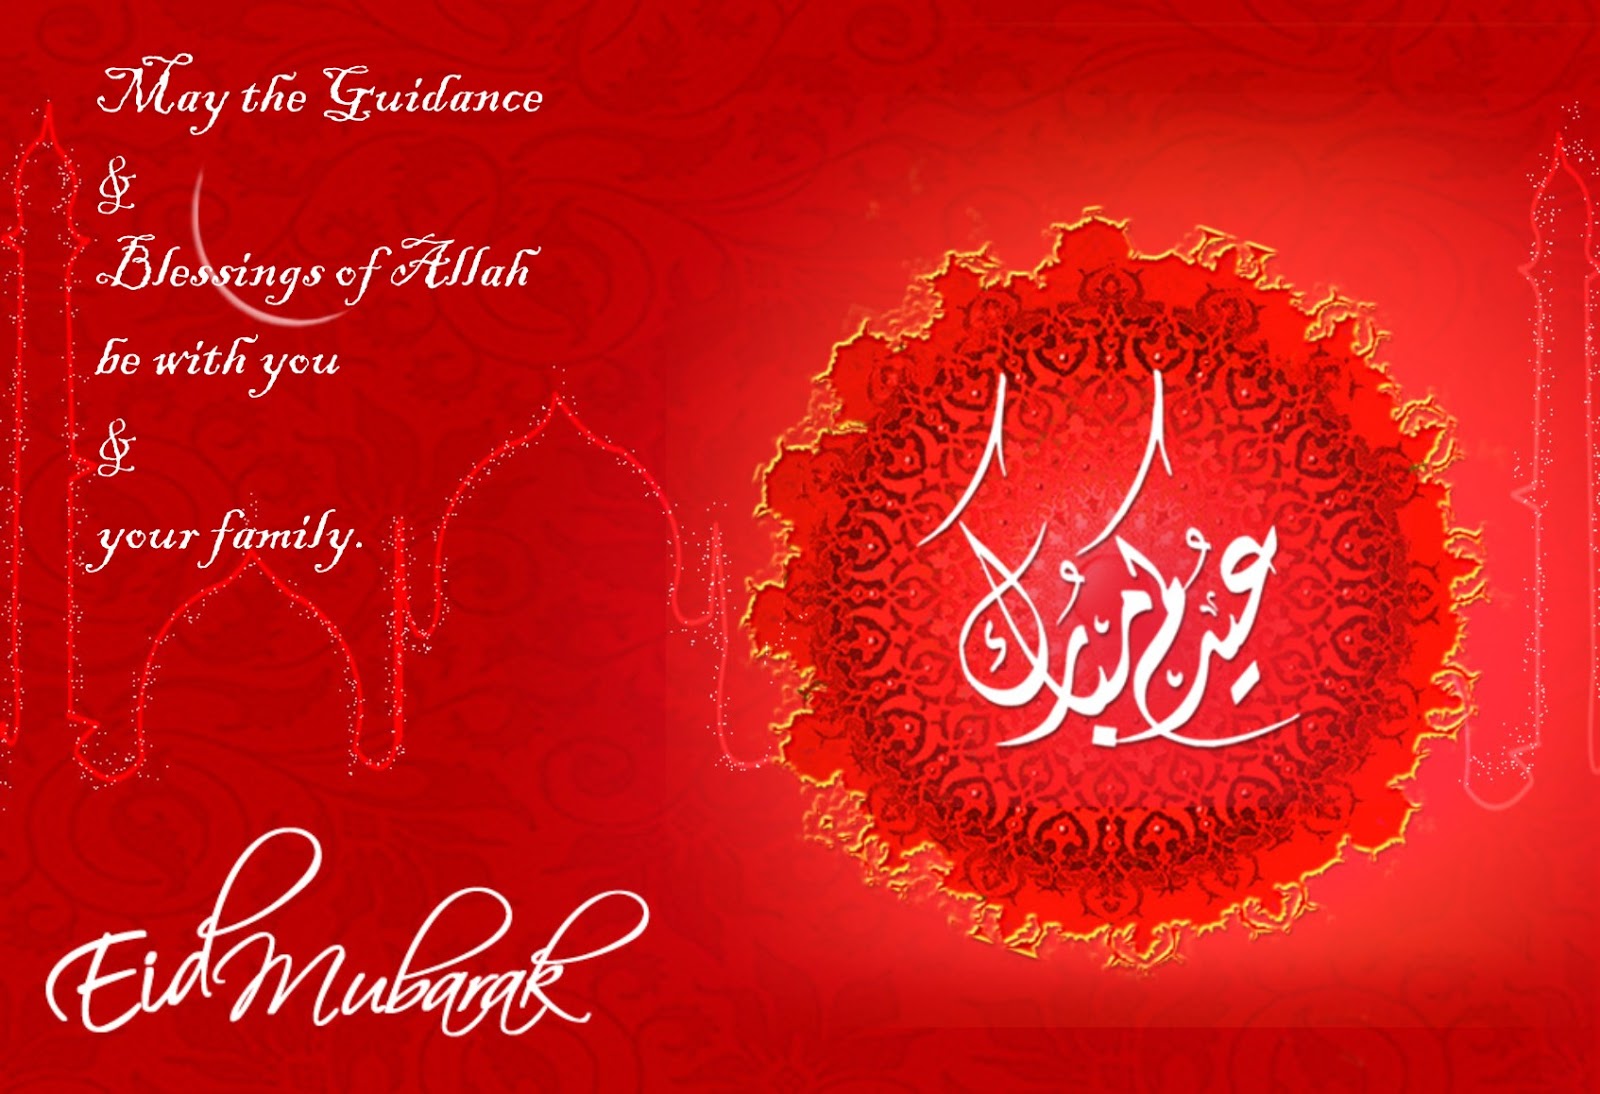 May the Guidance
&
Blessings of Allah
be with you
&
your family.
عيد مبارك
Eid Mubarak